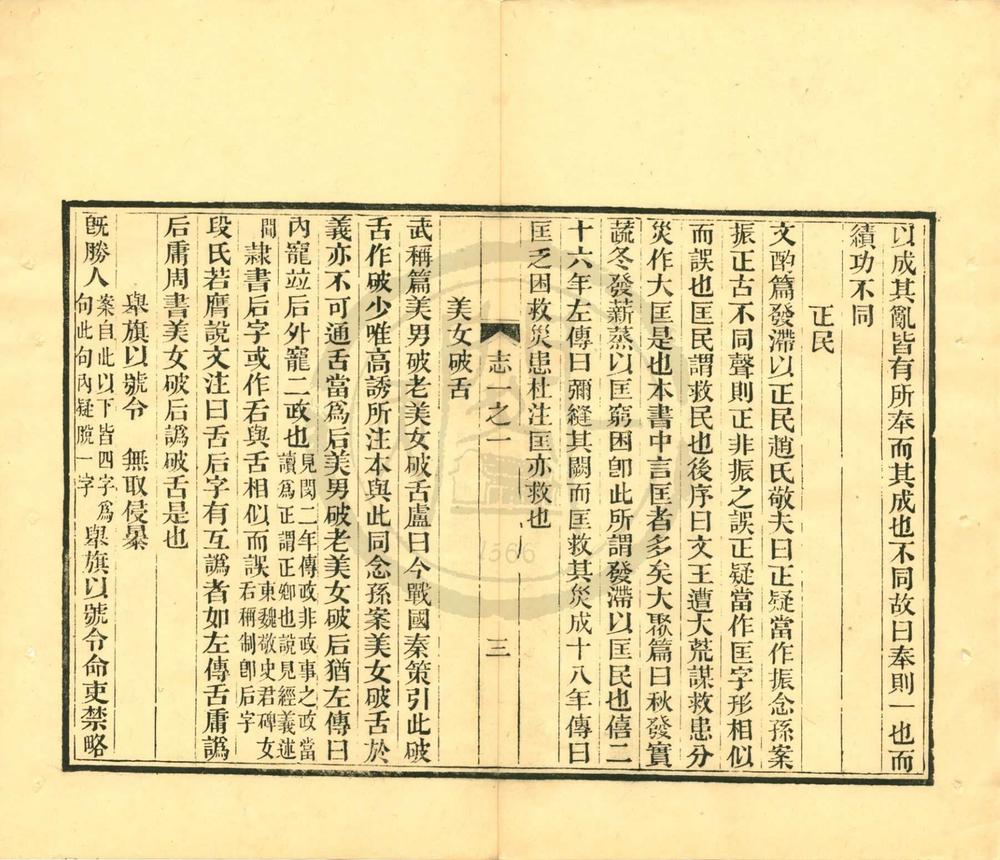 以成其亂皆有所奉而其成也不同故曰奉則一也而
績功不同
正民
文酌篇發滯以正民趙氏敬夫曰正疑當作振念孫案
振正古不同聲則正非振之誤正疑當作匡字形相似
而誤也匡民謂救民也後序曰文王遭大荒謀救患分
災作大匡是也本書中言匡者多矣大聚篇曰秋發實
蔬冬發薪蒸以匡窮困卽此所謂發滯以匡民也僖二
十六年左傳曰彌縫其闕而匡救其災成十八年傳曰
匡乏困救災患杜注匡亦救也
志一之一
三
美女破舌
武稱篇美男破老美女破舌盧曰今戰國秦策引此破
舌作破少唯高誘所注本與此同念孫案美女破舌於
義亦不可通舌當爲后美男破老美女破后猶左傳曰
內寵竝后外寵二政也見閔二年傳政非政事之政當
讀爲正謂正卿也說見經義述
聞隸書后字或作右與舌相似而誤東魏敬史君碑女
右稱制卽后字
段氏若膺說文注曰舌后字有互譌者如左傳舌庸譌
后庸周書美女破后譌破舌是也
擧旗以號令　無取侵暴
旣勝人案自此以下皆四字爲
句此句內疑脫一字擧旗以號令命吏禁略